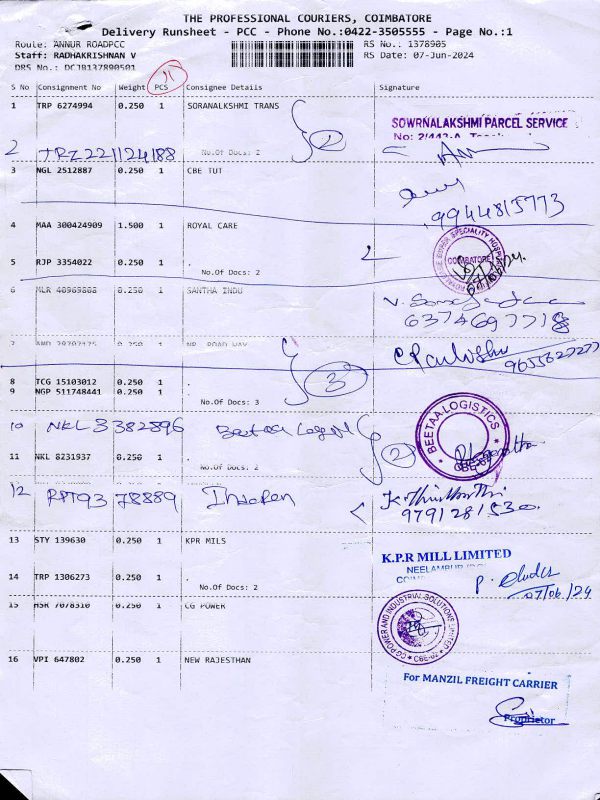 THE PROFESSIONAL COURIERS, COIMBATORE
Delivery Runsheet - PCC - Phone No.:0422-3505555 - Page No.:1
Route: ANNUR ROADPCC RS No.: 1378905
Staff: RADHAKRISHNAN V RS Date: 07-Jun-2024
DRS No.: DCJB137890501
11
S No Consignment No Weight PCS Consignee Details Signature
1 TRP 6274994 0.250 1 SORANALKSHMI TRANS
SOWRNALAKSHMI PARCEL SERVICE
2
2 TRZ221124188 No.Of Docs: 2
3 NGL 2512887 0.250 1 CBE TUT
9944815773
4 MAA 300424909 1.500 1 ROYAL CARE
5 RJP 3354022 0.250 1 .
COIMBATORE
No.Of Docs: 2
6 MLR 40969808 0.250 1 SANTHA INDU
6374697718
7 0.250 1
8 TCG 15103012 0.250 1 .
9 NGP 511748441 0.250 1 .
3
No.Of Docs: 3
10 NKL 3382896 Beetaa
BEETAA LOGISTICS
11 NKL 8231937 0.250 1 .
2
No.Of Docs: 2
12 RPT93 78889
9791281530
13 STY 139630 0.250 1 KPR MILS
K.P.R MILL LIMITED
14 TRP 1306273 0.250 1 .
No.Of Docs: 2
07/06/24
15 HSR 7078310 0.250 1 CG POWER
CG POWER AND INDUSTRIAL SOLUTIONS LIMITED
16 VPI 647802 0.250 1 NEW RAJESTHAN
For MANZIL FREIGHT CARRIER
Proprietor